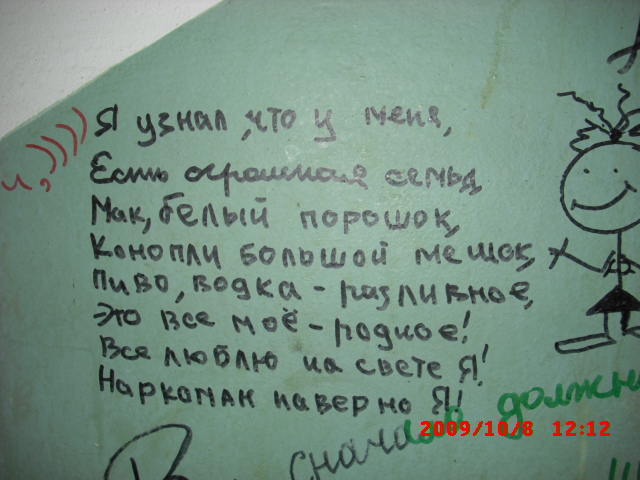 Я узнал, что у меня,
Есть огромная семья,
Мак, белый порошок,
Конопли большой мешок,
Пиво, водка - разливное,
Это все моё - родное!
Все люблю на свете Я!
Наркоман наверно Я!
сначала должн
2009/10/8 12:12